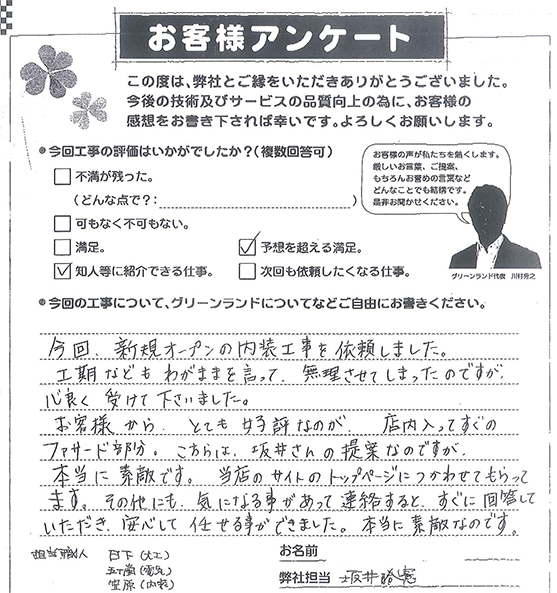 お客様アンケート
この度は、弊社とご縁をいただきありがとうございました。
今後の技術及びサービスの品質向上の為に、お客様の
感想をお書き下されば幸いです。よろしくお願いします。
●今回工事の評価はいかがでしたか?(複数回答可)
不満が残った。
(どんな点で?: )
可もなく不可もない。
満足。
予想を超える満足。
知人等に紹介できる仕事。
次回も依頼したくなる仕事。
お客様の声が私たちを熱くします。
厳しいお言葉、ご提案、
もちろんお誉めの言葉など
どんなことでも結構です。
是非お聞かせください。
グリーンランド代表
●今回の工事について、グリーンランドについてなどご自由にお書きください。
今回、新規オープンの内装工事を依頼しました。
工期なども わがままを言って、無理させてしまったのですが、
心良く 受けて 下さいました。
お客様 から、とても 好評 なのが、店内入ってすぐの
ファサード部分。こちらは、坂井さんの提案なのですが、
本当に 素敵です。当店の サイトの トップページに つかわせてもらって
ます。その他にも、気になる事があって 連絡すると、すぐに 回答して
いただき、安心して 任せる事ができました。本当に素敵なのです。
担当職人
日下(大工)
(電気)
笠原(内装)
お名前
弊社担当 坂井